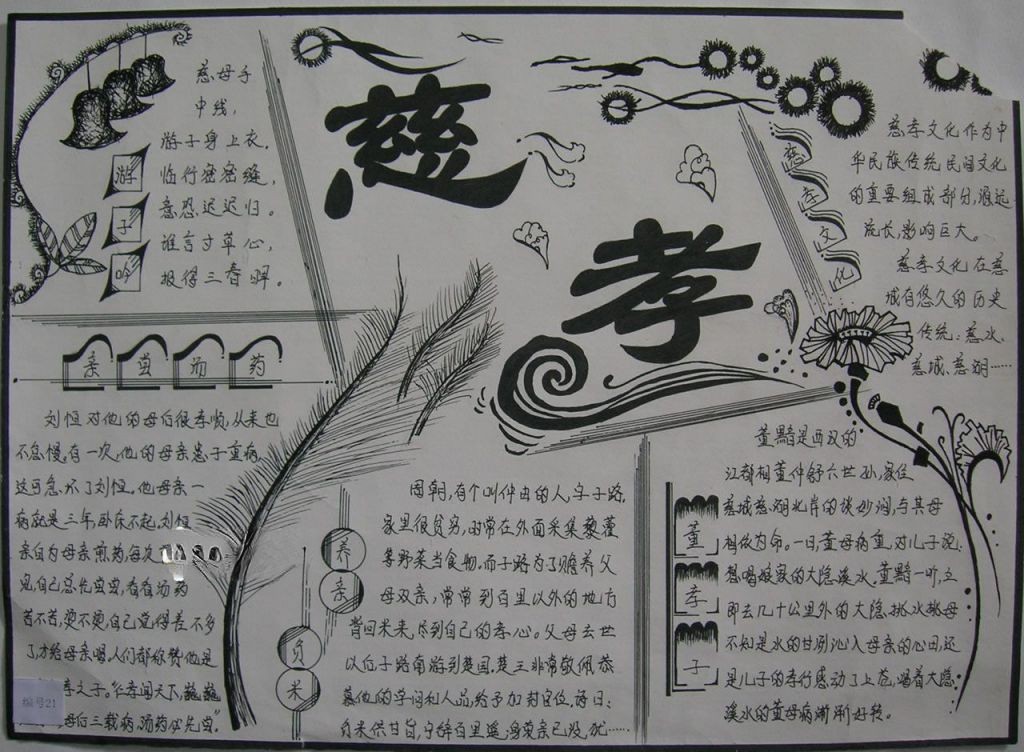 慈孝
游子吟
慈母手
中线，
游子身上衣，
临行密密缝，
意恐迟迟归。
谁言寸草心，
报得三春晖。
慈孝文化
慈孝文化作为中
华民族传统民间文化
的重要组成部分，源远
流长，影响巨大。
慈孝文化在慈
城有悠久的历史
传统：慈水、
慈城、慈湖……
亲尝汤药
刘恒对他的母后很孝顺，从来也
不怠慢。有一次，他的母亲患了重病，
这可急坏了刘恒。他母亲一
病就是三年，卧床不起。刘恒
亲自为母亲煎药，每次
见，自己总先尝尝，看看汤药
苦不苦，烫不烫，自己觉得差不多
了，才给母亲喝。人们都称赞他是
孝之子。“仁孝闻天下，巍巍
母后三载病，汤药必先尝”。
养亲负米
周朝，有个叫仲由的人，字子路，
家里很贫穷，时常在外面采集藜藿
等野菜当食物，而子路为了赡养父
母双亲，常常到百里以外的地方
背回米来，尽到自己的孝心。父母去世
以后子路南游到楚国，楚王非常敬佩恭
慕他的学问和人品，给予加封官位。诗曰：
负米供甘旨，宁辞百里遥，身荣亲已没，犹……
董孝子
董黯是西汉的
江都相董仲舒六世孙，家住
慈城慈湖北岸的谈妙涧，与其母
相依为命。一日，董母病重，对儿子说：
想喝娘家的大隐溪水，董黯一听，立
即去几十公里外的大隐，挑水挑母
不知是水的甘冽沁入母亲的心田，还
是儿子的孝行感动了上苍，喝着大隐
溪水的董母病渐渐好转。
编号21